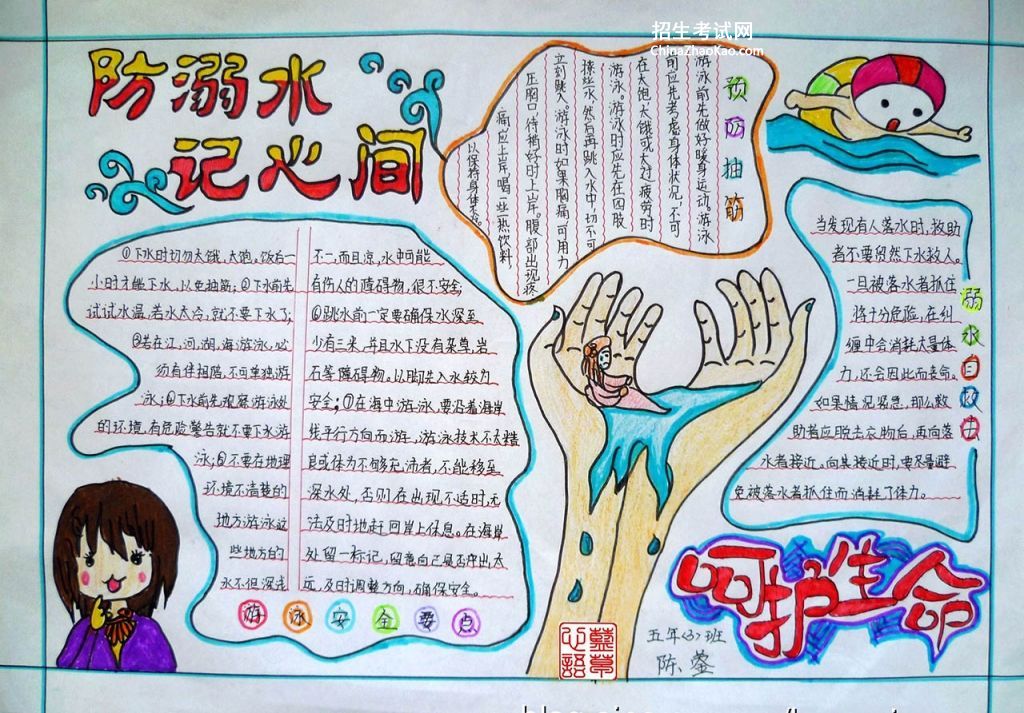 招生考试网
ChinaZhaoKao.com
防溺水
记心间
预防抽筋
游泳前先做好暖身运动。游泳
前应先考虑身体状况,不可
在太饱、太饿或太过疲劳时
游泳。游泳时应先在四肢
撩些水,然后再跳入水中,切不可
立刻跳入。游泳时如果胸痛,可用力
压胸口,待稍好时上岸。腹部出现疼
痛应上岸,喝一些热饮料,
以保持身体
①下水时切勿太饿、太饱。饭后一
小时才能下水,以免抽筋;②下水前先
试试水温,若水太冷,就不要下水了;
③若在江、河、湖、海游泳,必
须有伴相陪,不可单独游
泳;④下水前先观察游泳处
的环境,有危险警告就不要下水游
泳;⑤不要在地理
环境不清楚的
地方游泳这
些地方的
水不但深浅
不一,而且凉,水中可能
有伤人的障碍物,很不安全
⑥跳水前一定要确保水深至
少有三米,并且水下没有杂草、岩
石等障碍物。以脚先入水较为
安全;⑦在海中游泳,要沿着海岸
线平行方向而游,游泳技术不太精
良或体力不够充沛者,不能移至
深水处,否则在出现不适时,无
法及时地赶回岸上休息。在海岸
处留一标记,留意自己是否冲出太
远,及时调整方向,确保安全。
游泳安全要点
溺水自救法
当发现有人落水时,救助
者不要贸然下水救人。
一旦被落水者抓住
将十分危险,在纠
缠中会消耗大量体
力,还会因此而丧命。
如果情况紧急,那么救
助者应脱去衣物后,再向落
水者接近。向其接近时,要尽量避
免被落水者抓住而消耗了体力。
呵护生命
五年(3)班
陈蓥